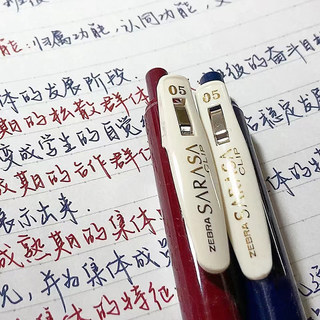 能:归属功能,认同功能,
体的发展阶段.
期的松散群体
变成学生的自觉
成期的合作群体
表示出来.
成熟期的集体
,并为集体成
集体的特征
级的奋斗目
稳定发展
05
ZEBRA SARASA CLIP
05
ZEBRA SARASA CLIP